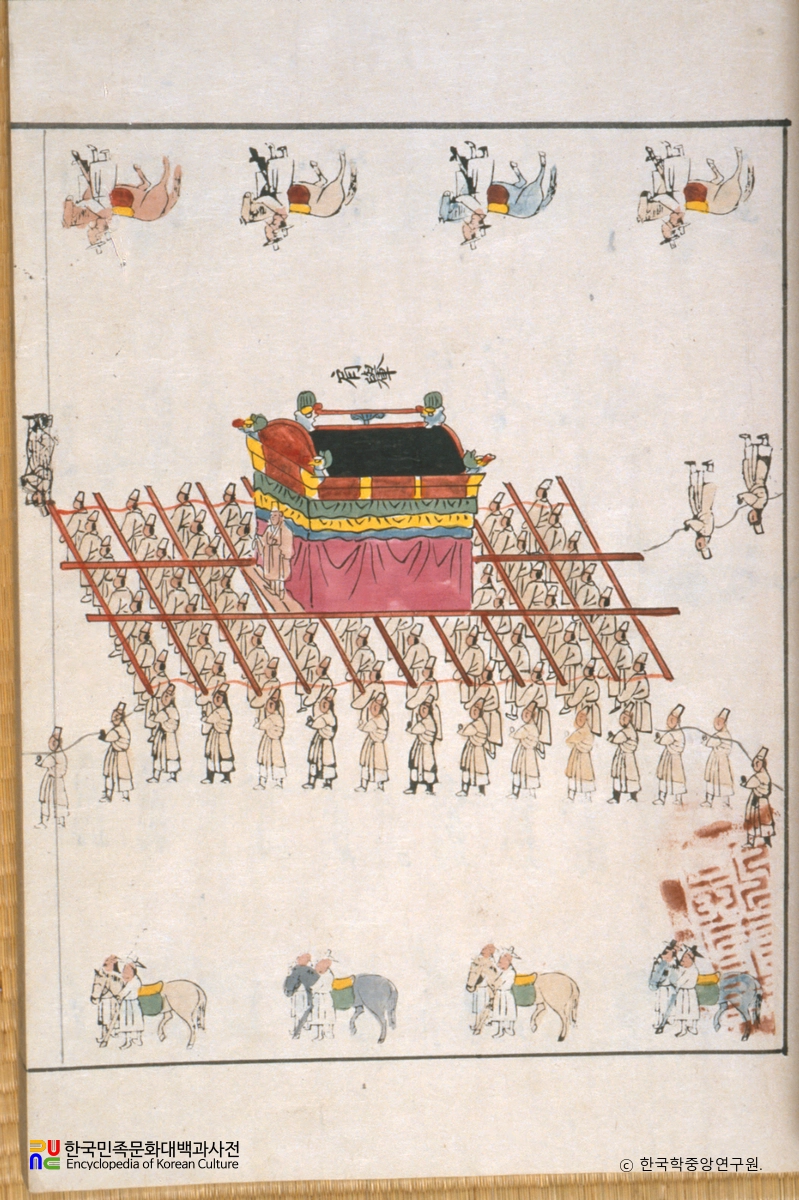 肩轝
한국민족문화대백과사전
Encyclopedia of Korean Culture
© 한국학중앙연구원.